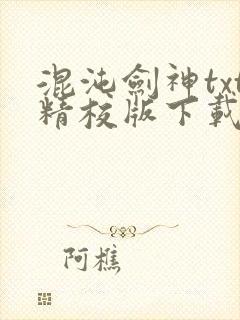 混沌劍神txt
精校版下載
阿樵